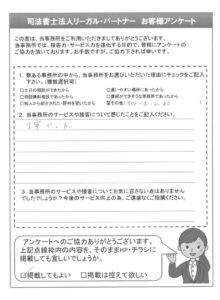 司法書士法人リーガル・パートナー　お客様アンケート
この度は、当事務所をご利用いただきましてありがとうございます。
当事務所では、接客力・サービス力を強化する目的で、皆様にアンケートの
ご協力を頂いております。お手数ですが、ご協力下されば幸いです。
1. 数ある事務所の中から、当事務所をお選びいただいた理由にチェックをご記入
下さい。(複数選択可)
□土日の相談ができたから □通いやすい場所にあったから
□初回無料相談であったから □費用ができそうな事務所であったから
□知人から紹介された・評判を聞いたから
2. 当事務所のサービスや接客について感じたことをご記入ください。
丁寧でした
3. 当事務所のサービスや接客についてお気に召さない点はありません
でしたでしょうか？今後のサービス向上の為、ご遠慮なくご指摘ください。
アンケートへのご協力ありがとうございます。
上記点線枠内の内容を、そのままHP・チラシに
掲載しても宜しいでしょうか。
☑掲載してもよい □掲載は控えて欲しい